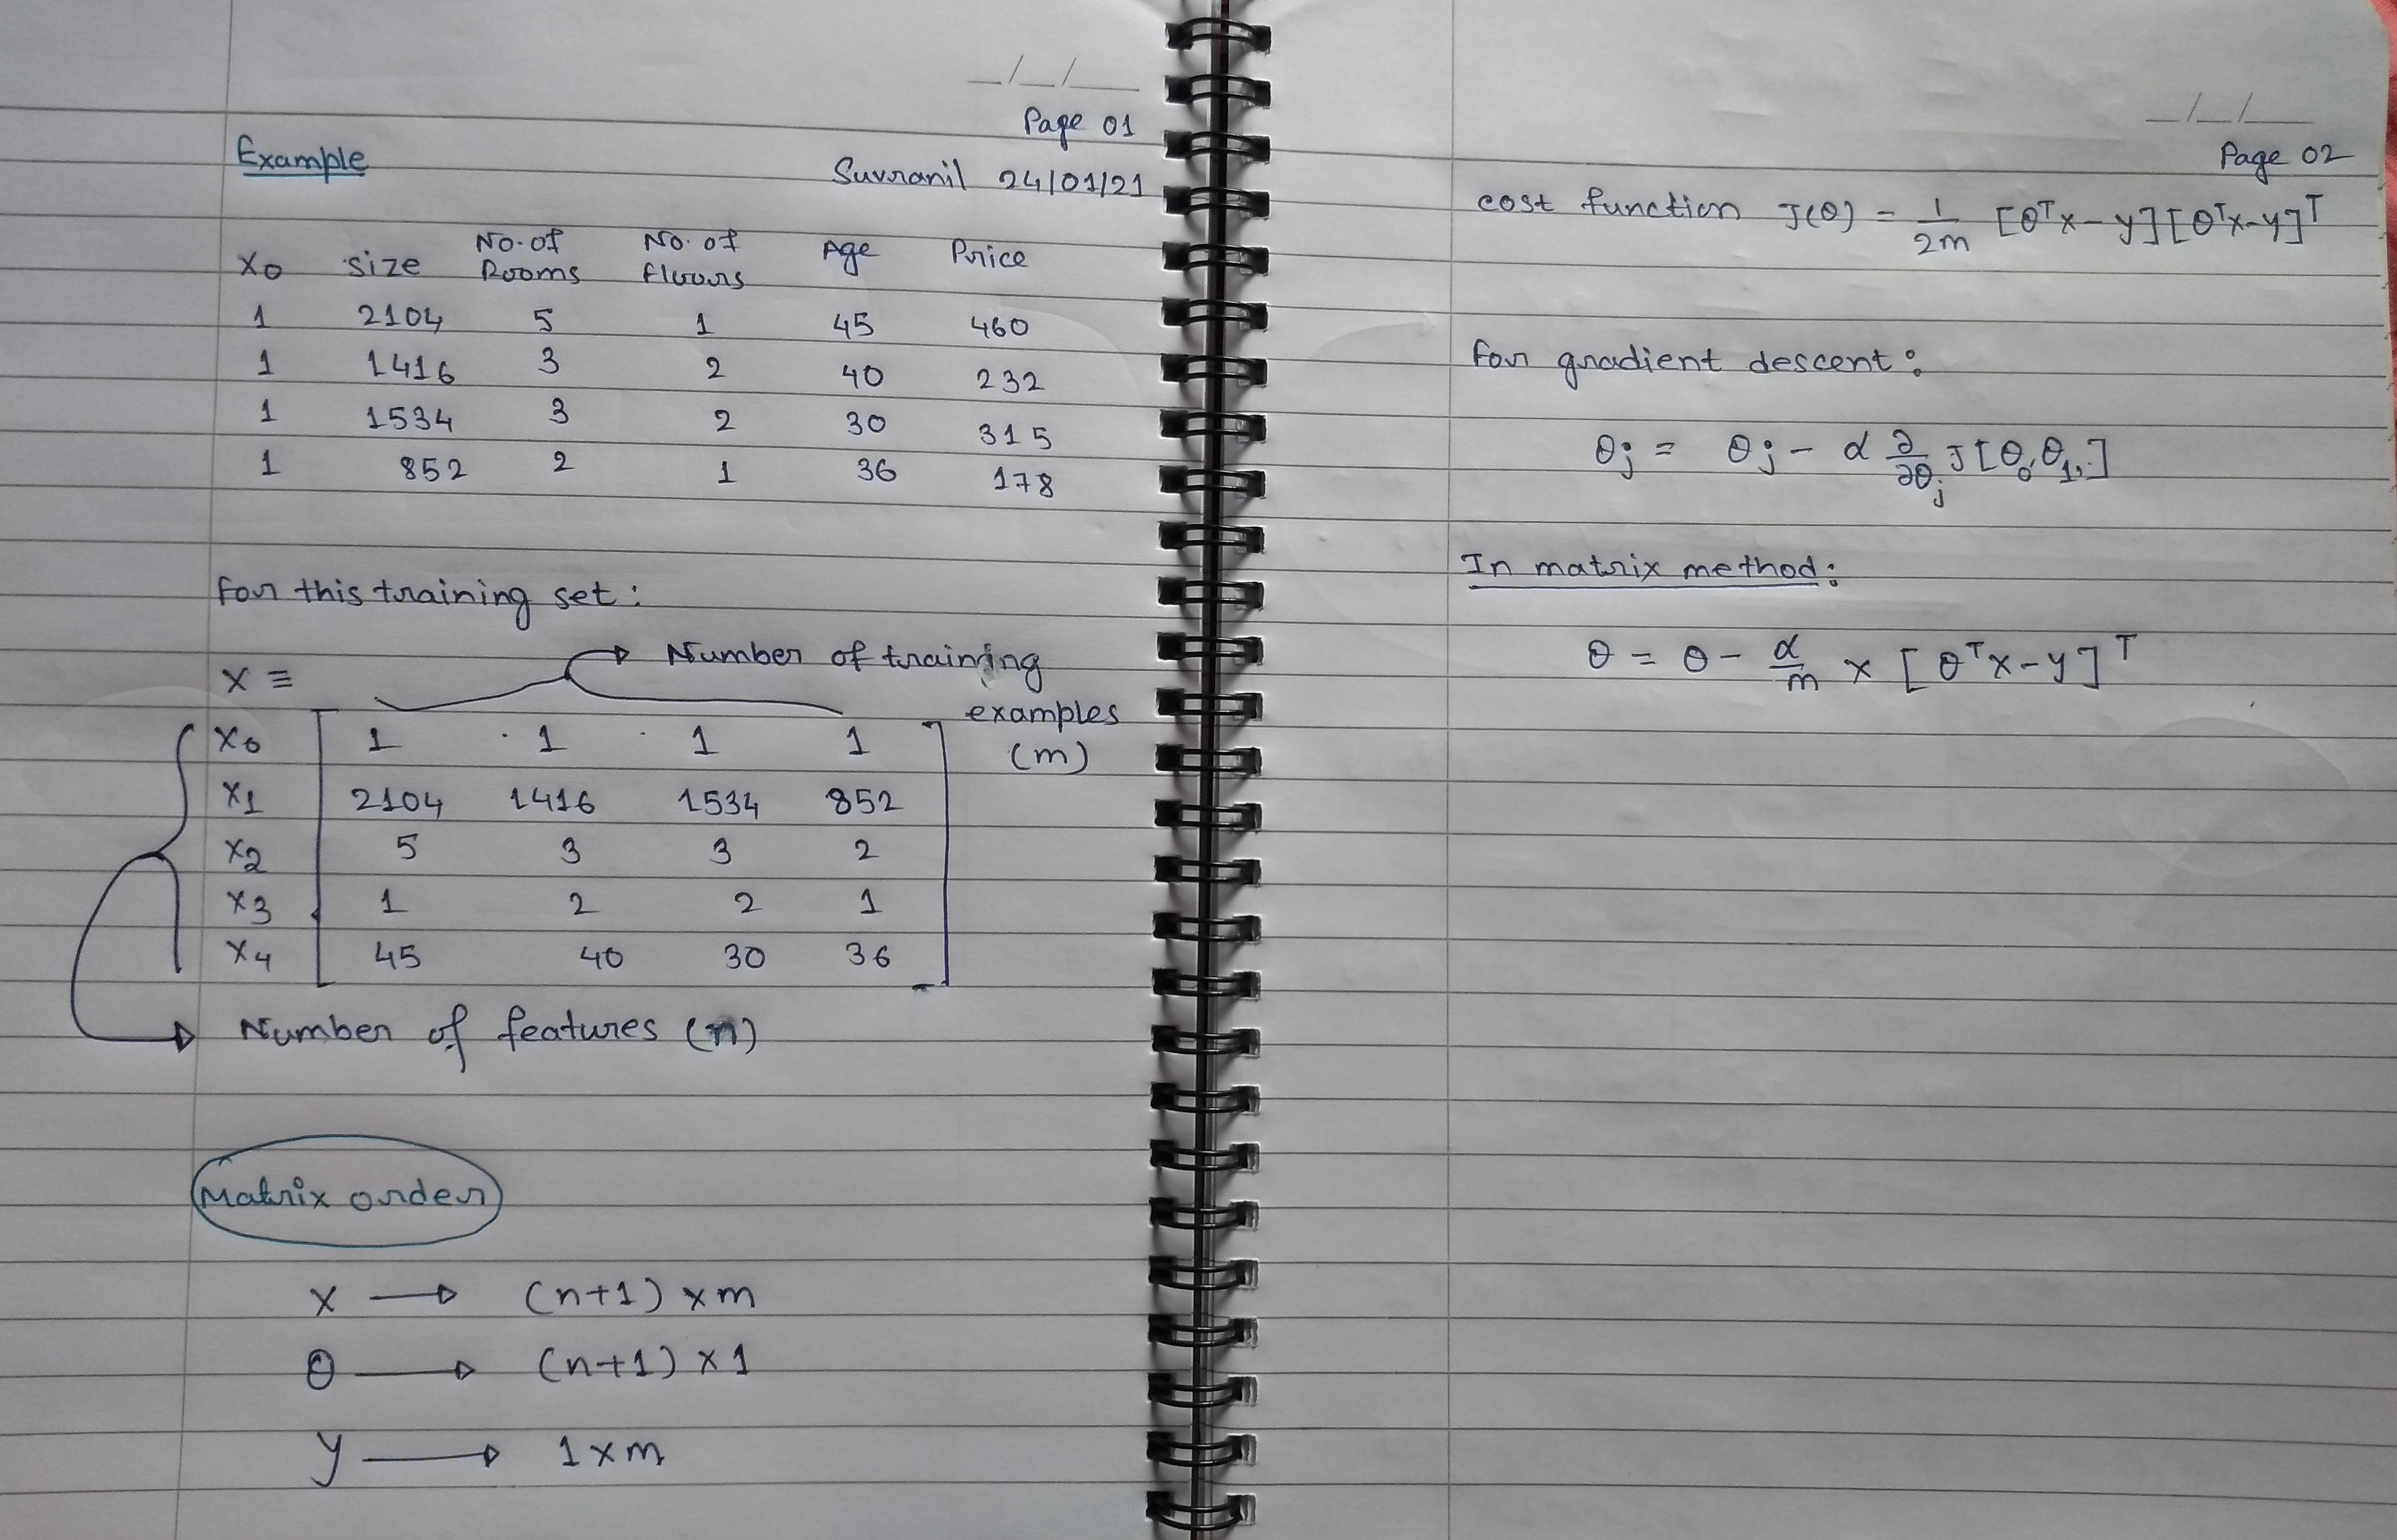 _/_/__
Page 01
Example
Suvranil 24/01/21
x₀ size No. of Rooms No. of floors Age Price
1 2104 5 1 45 460
1 1416 3 2 40 232
1 1534 3 2 30 315
1 852 2 1 36 178
for this training set:
Number of training
x ≡
examples
(m)
x₀ 1 1 1 1
x₁ 2104 1416 1534 852
x₂ 5 3 3 2
x₃ 1 2 2 1
x₄ 45 40 30 36
Number of features (n)
Matrix order
x → (n+1) × m
θ → (n+1) × 1
y → 1 × m
_/_/__
Page 02
cost function J(θ) = 1/2m [θᵀx-y][θᵀx-y]ᵀ
for gradient descent:
θj = θj - α ∂/∂θj J[θ₀,θ₁,.]
In matrix method:
θ = θ - α/m x [θᵀx-y]ᵀ